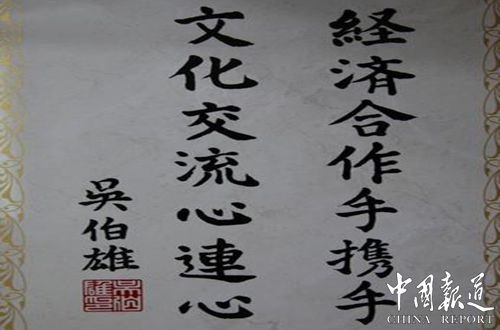 経済合作手携手
文化交流心連心
吳伯雄
中國報道
CHINA REPORT